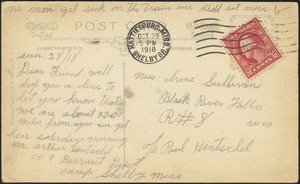 me men get sick on the train one died sat morn
POST
HATTIESBURG, MISS.
OCT 29
5 PM
1918
SHELBY BR.
Dear Friend. will
drop you a line to
let you know that
we are about 220
miles from
here saturday morning
mr arthur Hentschel
co. 9 Recruit
camp Shelby Miss
Miss Irene Sullivan
Black River Falls
R#8 Wis
c/o Paul Hentschel